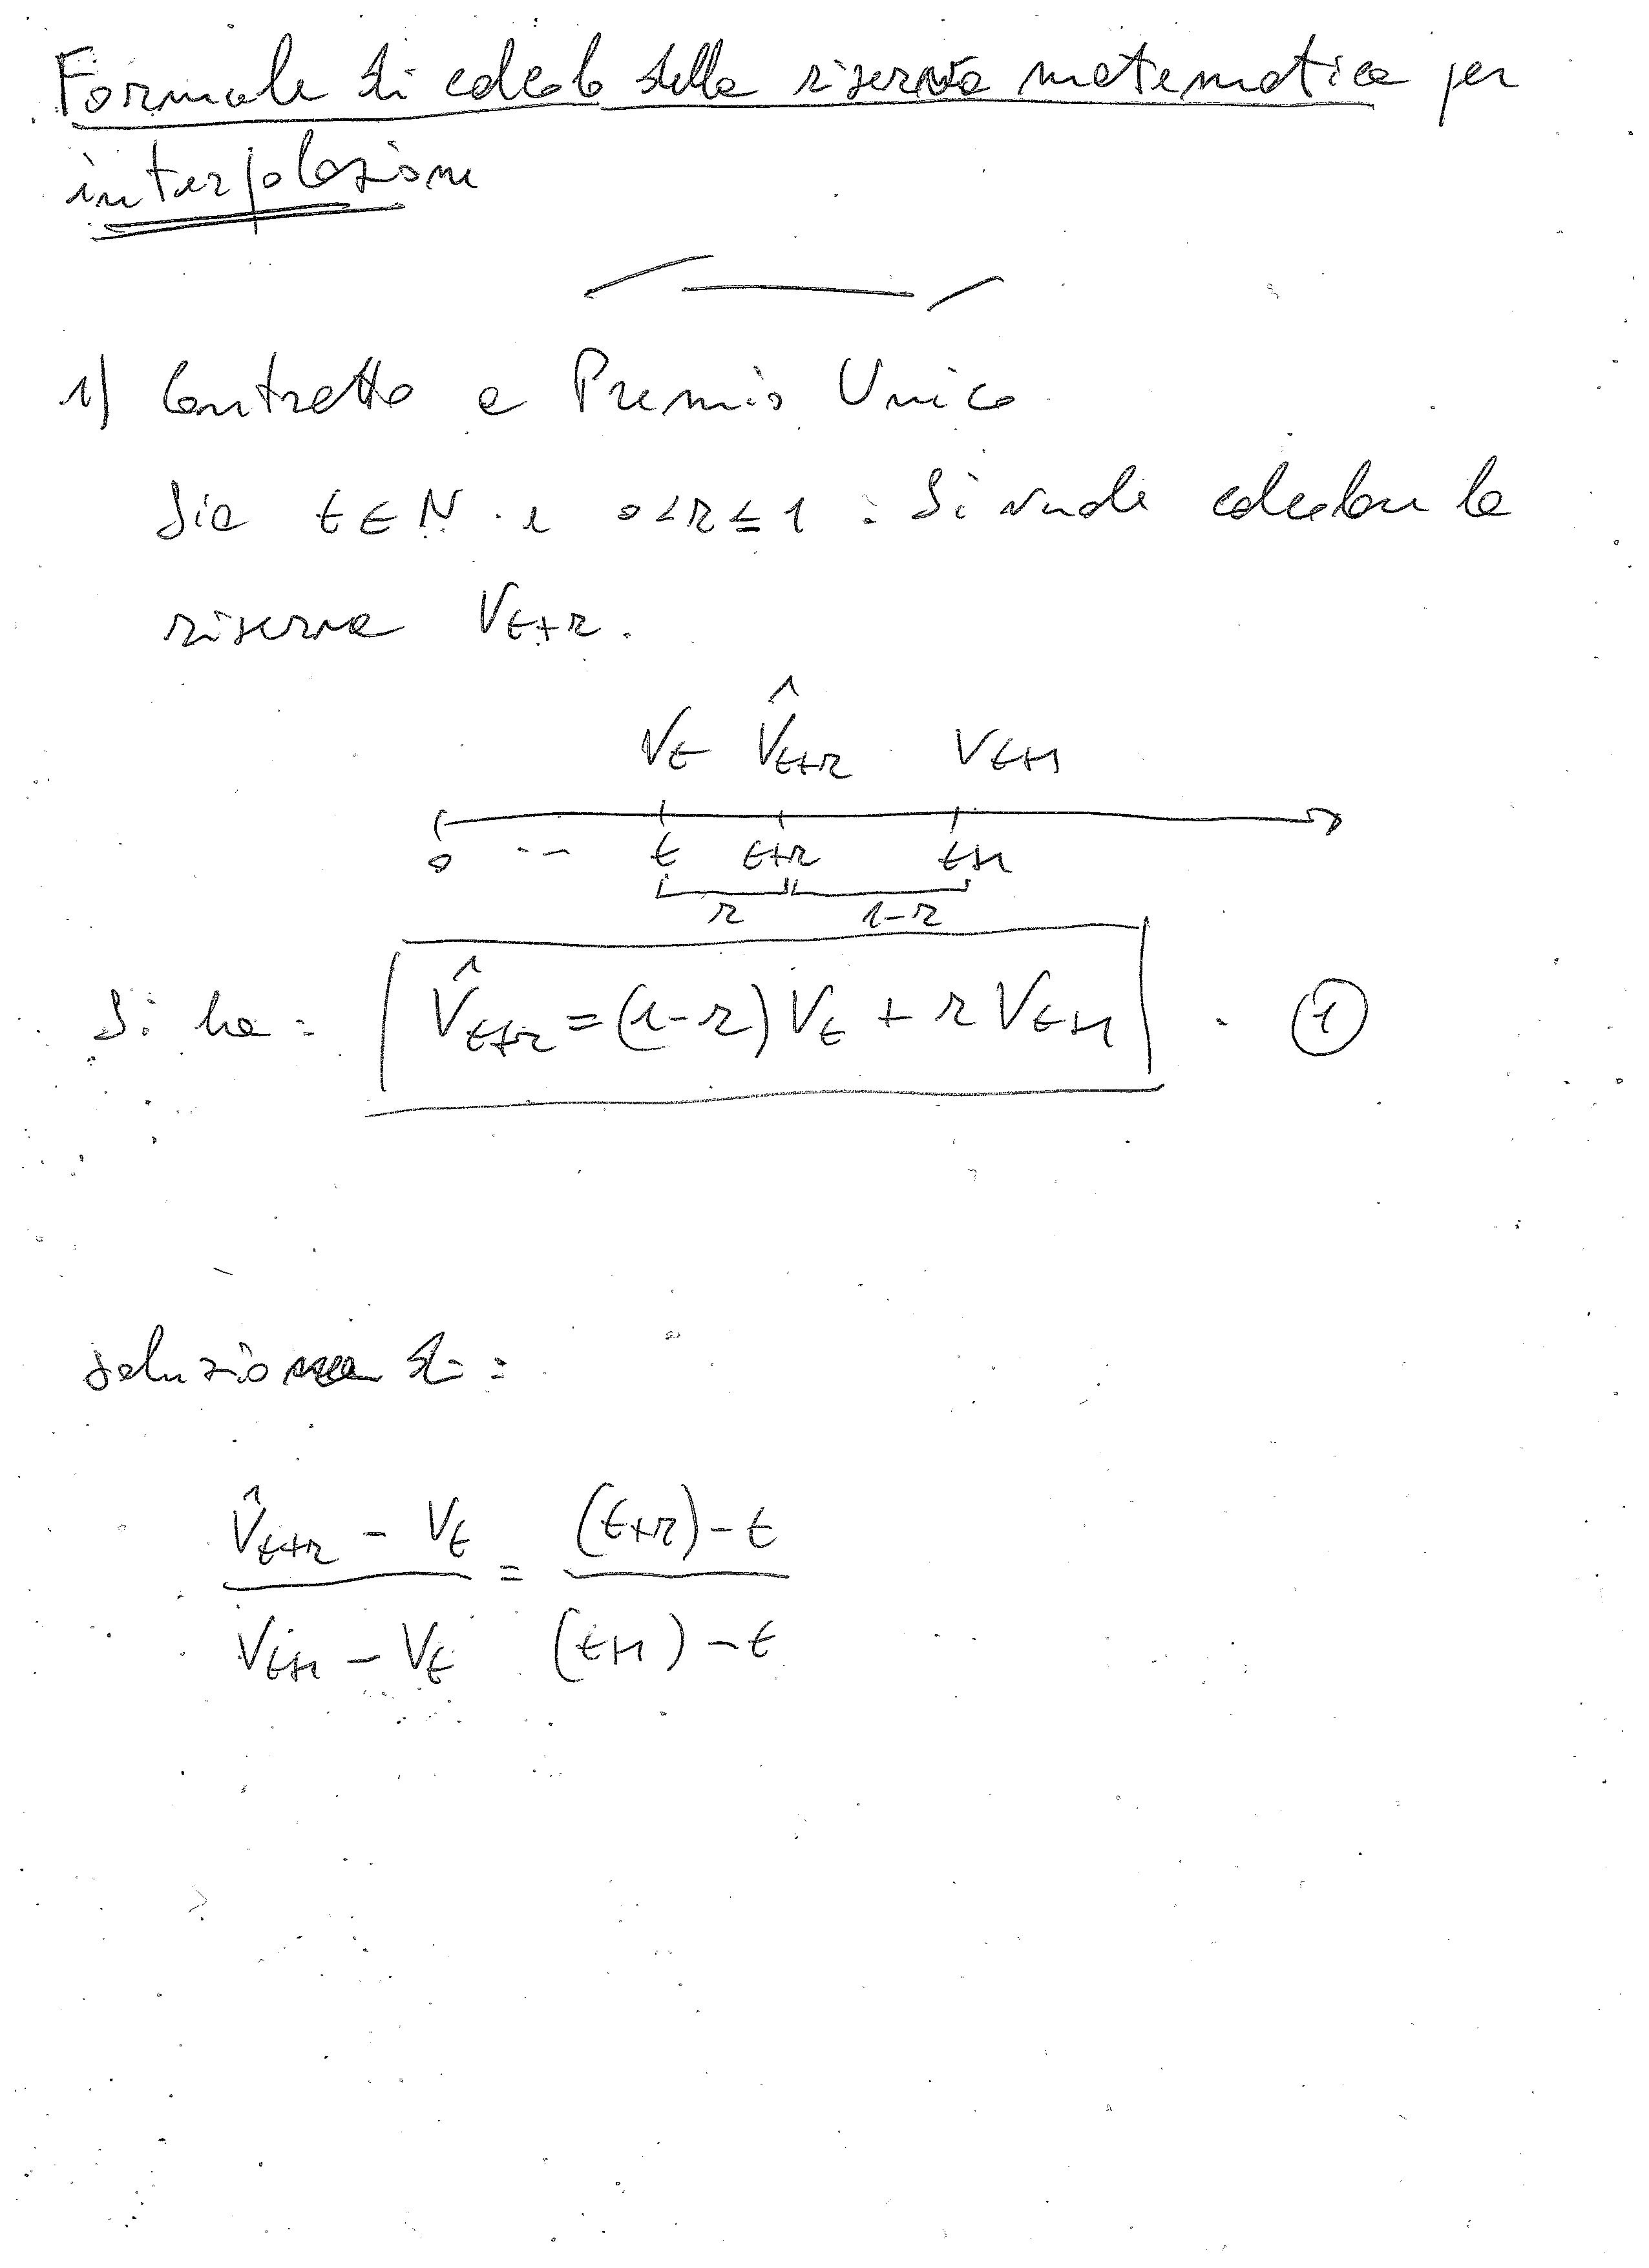 Formule di calcolo della riserva matematica per
interpolazione
1) Contratto a Premio Unico
Sia t ∈ N. e 0<r≤1 : Si vuole calcolare la
riserva V_{t+r}.
V_t V̂_{t+r} V_{t+1}
0 -- t t+r t+1
r 1-r
Si ha: V̂_{t+r} = (1-r) V_t + r V_{t+1} . ①
soluzione di:
V̂_{t+r} - V_t / V_{t+1} - V_t = (t+r)-t / (t+1)-t